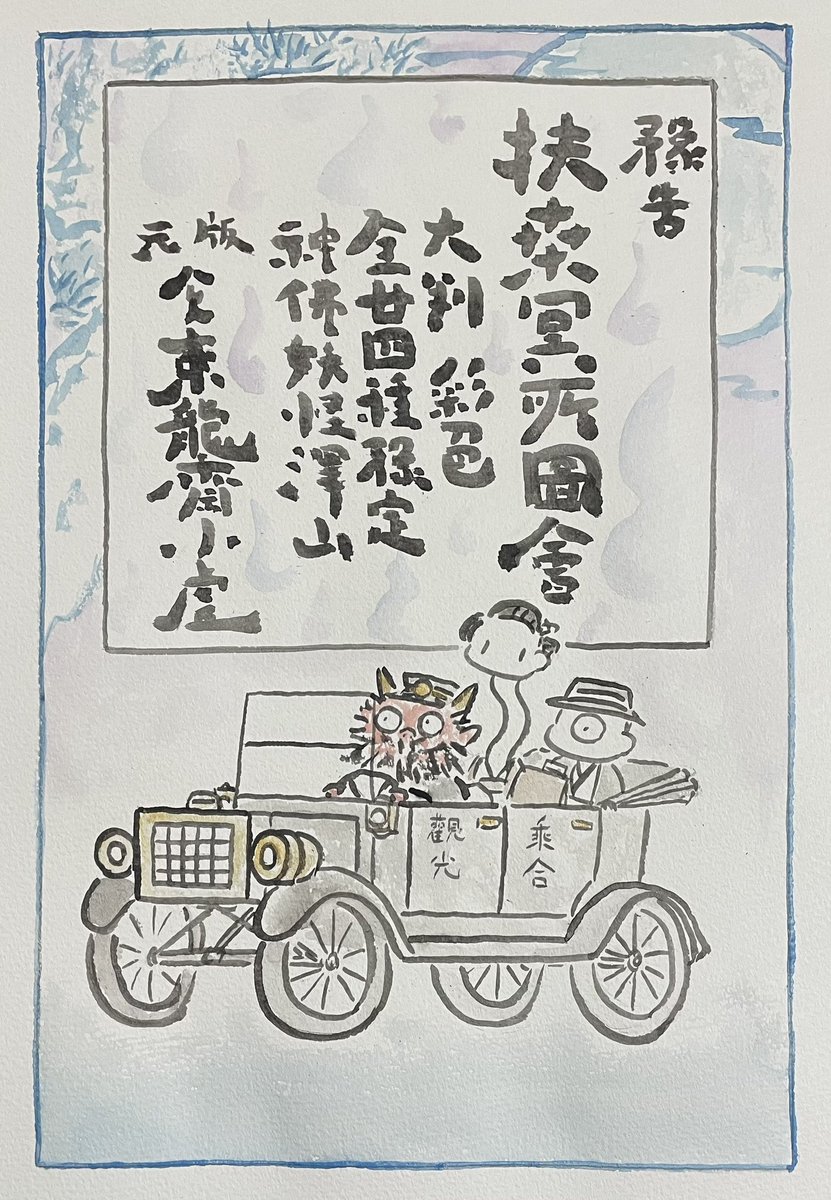 豫告
扶桑冥所圖會
大判 彩色
全廿四種豫定
神佛妖怪澤山
版元
東龍齋小虎
乗合
觀光